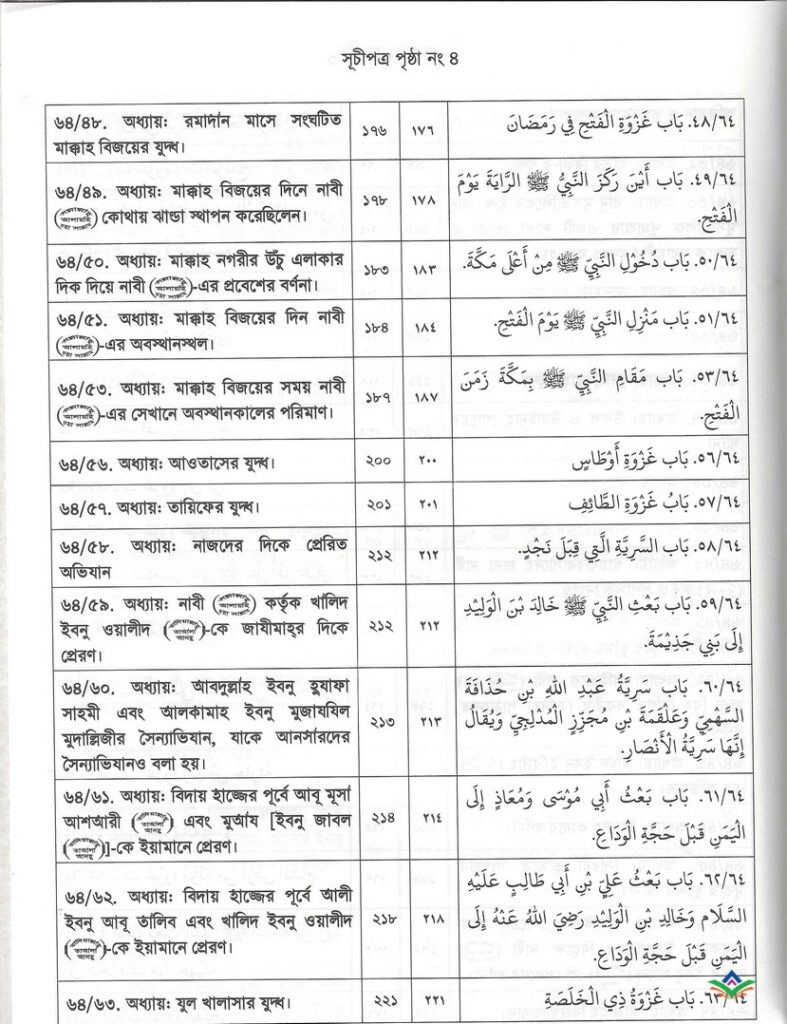 সূচীপত্র পৃষ্ঠা নং ৪
৬৪/৪৮. অধ্যায়ঃ রমাদান মাসে সংঘটিত
মাক্কাহ বিজয়ের যুদ্ধ।
১৭৬
١٧٦
٤٨/٦٤. بَاب غَزْوَةِ الْفَتْحِ فِي رَمَضَانَ
৬৪/৪৯. অধ্যায়ঃ মাক্কাহ বিজয়ের দিনে নাবী
(ﷺ) কোথায় ঝান্ডা স্থাপন করেছিলেন।
১৭৮
١٧٨
٤٩/٦٤. بَاب أَيْنَ رَكَزَ النَّبِيُّ ﷺ الرَّايَةَ يَوْمَ
الْفَتْحِ.
৬৪/৫০. অধ্যায়ঃ মাক্কাহ নগরীর উঁচু এলাকার
দিক দিয়ে নাবী (ﷺ)-এর প্রবেশের বর্ণনা।
১৮৩
١٨٣
٥٠/٦٤. بَاب دُخُوْلِ النَّبِيِّ ﷺ مِنْ أَعْلَى مَكَّةَ.
৬৪/৫১. অধ্যায়ঃ মাক্কাহ বিজয়ের দিন নাবী
(ﷺ)-এর অবস্থানস্থল।
১৮৪
١٨٤
٥١/٦٤. بَاب مَنْزِلِ النَّبِيِّ ﷺ يَوْمَ الْفَتْحِ.
৬৪/৫৩. অধ্যায়ঃ মাক্কাহ বিজয়ের সময় নাবী
(ﷺ)-এর সেখানে অবস্থানকালের পরিমাণ।
১৮৭
١٨٧
٥٣/٦٤. بَاب مَقَامِ النَّبِيِّ ﷺ بِمَكَّةَ زَمَنَ
الْفَتْحِ.
৬৪/৫৬. অধ্যায়ঃ আওতাসের যুদ্ধ।
২০০
٢٠٠
٥٦/٦٤. بَاب غَزْوَةِ أَوْطَاسٍ
৬৪/৫৭. অধ্যায়ঃ তায়িফের যুদ্ধ।
২০১
٢٠١
٥٧/٦٤. بَابُ غَزْوَةِ الطَّائِفِ
৬৪/৫৮. অধ্যায়ঃ নাজদের দিকে প্রেরিত
অভিযান
২১২
٢١٢
٥٨/٦٤. بَاب السَّرِيَّةِ الَّتِي قِبَلَ نَجْدٍ.
৬৪/৫৯. অধ্যায়ঃ নাবী (ﷺ) কর্তৃক খালিদ
ইবনু ওয়ালীদ (রাযিয়াল্লাহু তা'আলা আনহু)-কে জাযীমাহ্‌র দিকে
প্রেরণ।
২১২
٢١٢
٥٩/٦٤. بَاب بَعْثِ النَّبِيِّ ﷺ خَالِدَ بْنَ الْوَلِيْدِ
إِلَى بَنِي جَذِيْمَةَ.
৬৪/৬০. অধ্যায়ঃ আবদুল্লাহ ইবনু হুযাফা
সাহমী এবং আলকামাহ ইবনু মুজাযযিল
মুদাল্লিজীর সৈন্যাভিযান, যাকে আনসারদের
সৈন্যাভিযানও বলা হয়।
২১৩
٢١٣
٦٠/٦٤. بَاب سَرِيَّةُ عَبْدِ اللهِ بْنِ حُذَافَةَ
السَّهْمِيِّ وَعَلْقَمَةَ بْنِ مُجَزِّزٍ الْمُدْلِجِيِّ وَيُقَالُ
إِنَّهَا سَرِيَّةُ الْأَنْصَارِ.
৬৪/৬১. অধ্যায়ঃ বিদায় হাজ্জের পূর্বে আবূ মূসা
আশআরী (রাযিয়াল্লাহু তা'আলা আনহু) এবং মুআয [ইবনু জাবল
(রাযিয়াল্লাহু তা'আলা আনহু)]-কে ইয়ামানে প্রেরণ।
২১৪
٢١٤
٦١/٦٤. بَاب بَعْثُ أَبِي مُوْسَى وَمُعَاذٍ إِلَى
الْيَمَنِ قَبْلَ حَجَّةِ الْوَدَاعِ.
৬৪/৬২. অধ্যায়ঃ বিদায় হাজ্জের পূর্বে আলী
ইবনু আবূ তালিব এবং খালিদ ইবনু ওয়ালীদ
(রাযিয়াল্লাহু তা'আলা আনহু)-কে ইয়ামানে প্রেরণ।
২১৮
٢١٨
٦٢/٦٤. بَاب بَعْثُ عَلِيِّ بْنِ أَبِي طَالِبٍ عَلَيْهِ
السَّلَام وَخَالِدِ بْنِ الْوَلِيْدِ رَضِيَ اللهُ عَنْهُ إِلَى
الْيَمَنِ قَبْلَ حَجَّةِ الْوَدَاعِ.
৬৪/৬৩. অধ্যায়ঃ যুল খালাসার যুদ্ধ।
২২১
٢٢١
٦٣/٦٤. بَاب غَزْوَةُ ذِي الْخَلَصَةِ